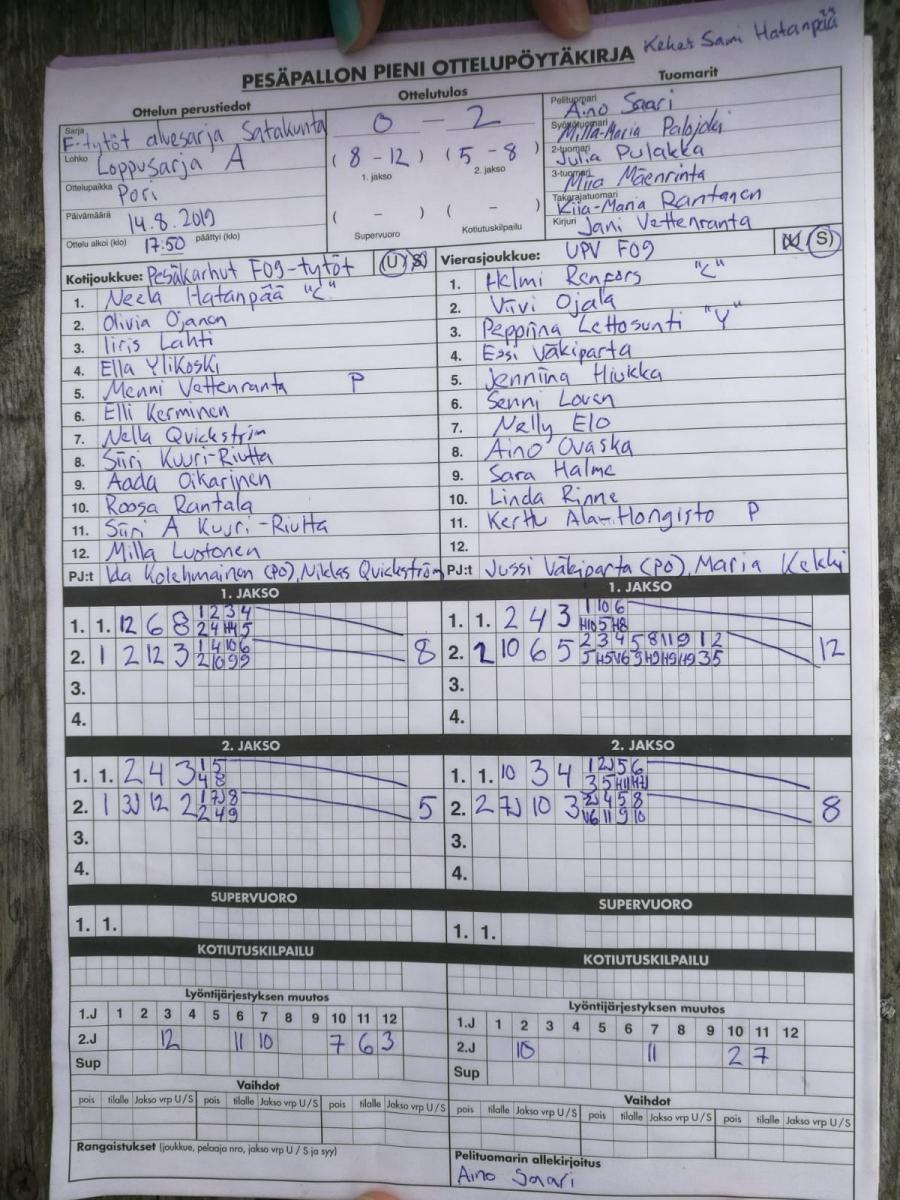 Kehet Sami Hatanpää
PESÄPALLON PIENI OTTELUPÖYTÄKIRJA
Ottelun perustiedot
Ottelutulos
Tuomarit
Sarja F-tytöt aluesarja Satakunta
Lohko Loppusarja A
Ottelupaikka Pori
Päivämäärä 14.8.2019
Ottelu alkoi (klo) 17:50 päättyi (klo)
0 - 2
( 8 - 12 ) ( 5 - 8 )
1. jakso 2. jakso
( - ) ( - )
Supervuoro Kotiutuskilpailu
Pelituomari Aino Saari
Syöttötuomari Milla-Maria Palojoki
2-tuomari Julia Pulakka
3-tuomari Miia Mäenrinta
Takarajatuomari Kiia-Maria Rantanen
Kirjuri Jani Vettenranta
Kotijoukkue: Pesäkarhut F09-tytöt (U) S
1. Neela Hatanpää "C"
2. Olivia Ojanen
3. Iiris Lahti
4. Ella Ylikoski
5. Menni Vettenranta P
6. Elli Kerminen
7. Nella Quickström
8. Siiri Kuuri-Riutta
9. Aada Oikarinen
10. Roosa Rantala
11. Siiri A Kuuri-Riutta
12. Milla Luotonen
PJ:t Ida Kolehmainen (PO), Niklas Quickström
Vierasjoukkue: UPV F09 U (S)
1. Helmi Renfors "C"
2. Viivi Ojala
3. Peppiina Lettosunti "Y"
4. Essi Väkiparta
5. Jenniina Hiukka
6. Senni Loven
7. Nelly Elo
8. Aino Ovaska
9. Sara Halme
10. Linda Rinne
11. Kerttu Ala-Hongisto P
12.
PJ:t Jussi Väkiparta (PO), Maria Kekki
1. JAKSO
1. 1. 12 6 8 1 2 3 4
2 4 H4 5
2. 1 2 12 3 1 4 10 6 8
2 10 9 9
3.
4.
1. JAKSO
1. 1. 2 4 3 1 10 6
H10 5 H8
2. 2 10 6 5 2 3 4 5 8 11 9 1 2 12
5 H5 V6 9 H9 H9 H9 3 5
3.
4.
2. JAKSO
1. 1. 2 4 3 1 5
4 8
2. 1 3J 12 2 1 7J 8 5
2 4 9
3.
4.
2. JAKSO
1. 1. 10 3 4 1 2J 5 6
3 5 H11 H7J
2. 2 7J 10 3 2J 4 5 8 8
V6 11 9 10
3.
4.
SUPERVUORO
1. 1.
SUPERVUORO
1. 1.
KOTIUTUSKILPAILU
KOTIUTUSKILPAILU
Lyöntijärjestyksen muutos
1.J 1 2 3 4 5 6 7 8 9 10 11 12
2.J 12 11 10 7 6 3
Sup
Lyöntijärjestyksen muutos
1.J 1 2 3 4 5 6 7 8 9 10 11 12
2.J 10 11 2 7
Sup
Vaihdot
pois tilalle Jakso vrp U/S pois tilalle Jakso vrp U/S pois tilalle Jakso vrp U/S
Vaihdot
pois tilalle Jakso vrp U/S pois tilalle Jakso vrp U/S pois tilalle Jakso vrp U/S
Rangaistukset (joukkue, pelaaja nro, jakso vrp U / S ja syy)
Pelituomarin allekirjoitus
Aino Saari